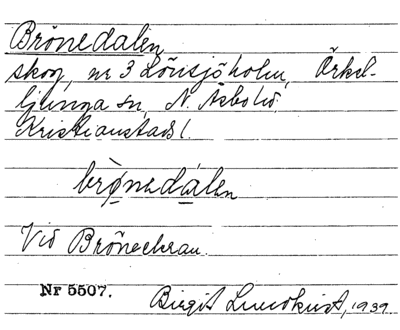 Brönedalen
skog, nr 3 Lönsjöholm, Örkel-
ljunga sn, N. Åsbo hd.
Kristianstads l.
brö̀nedálen
Vid Brönechrau.
Nr 5507.
Birgit Lundkvist, 1939.